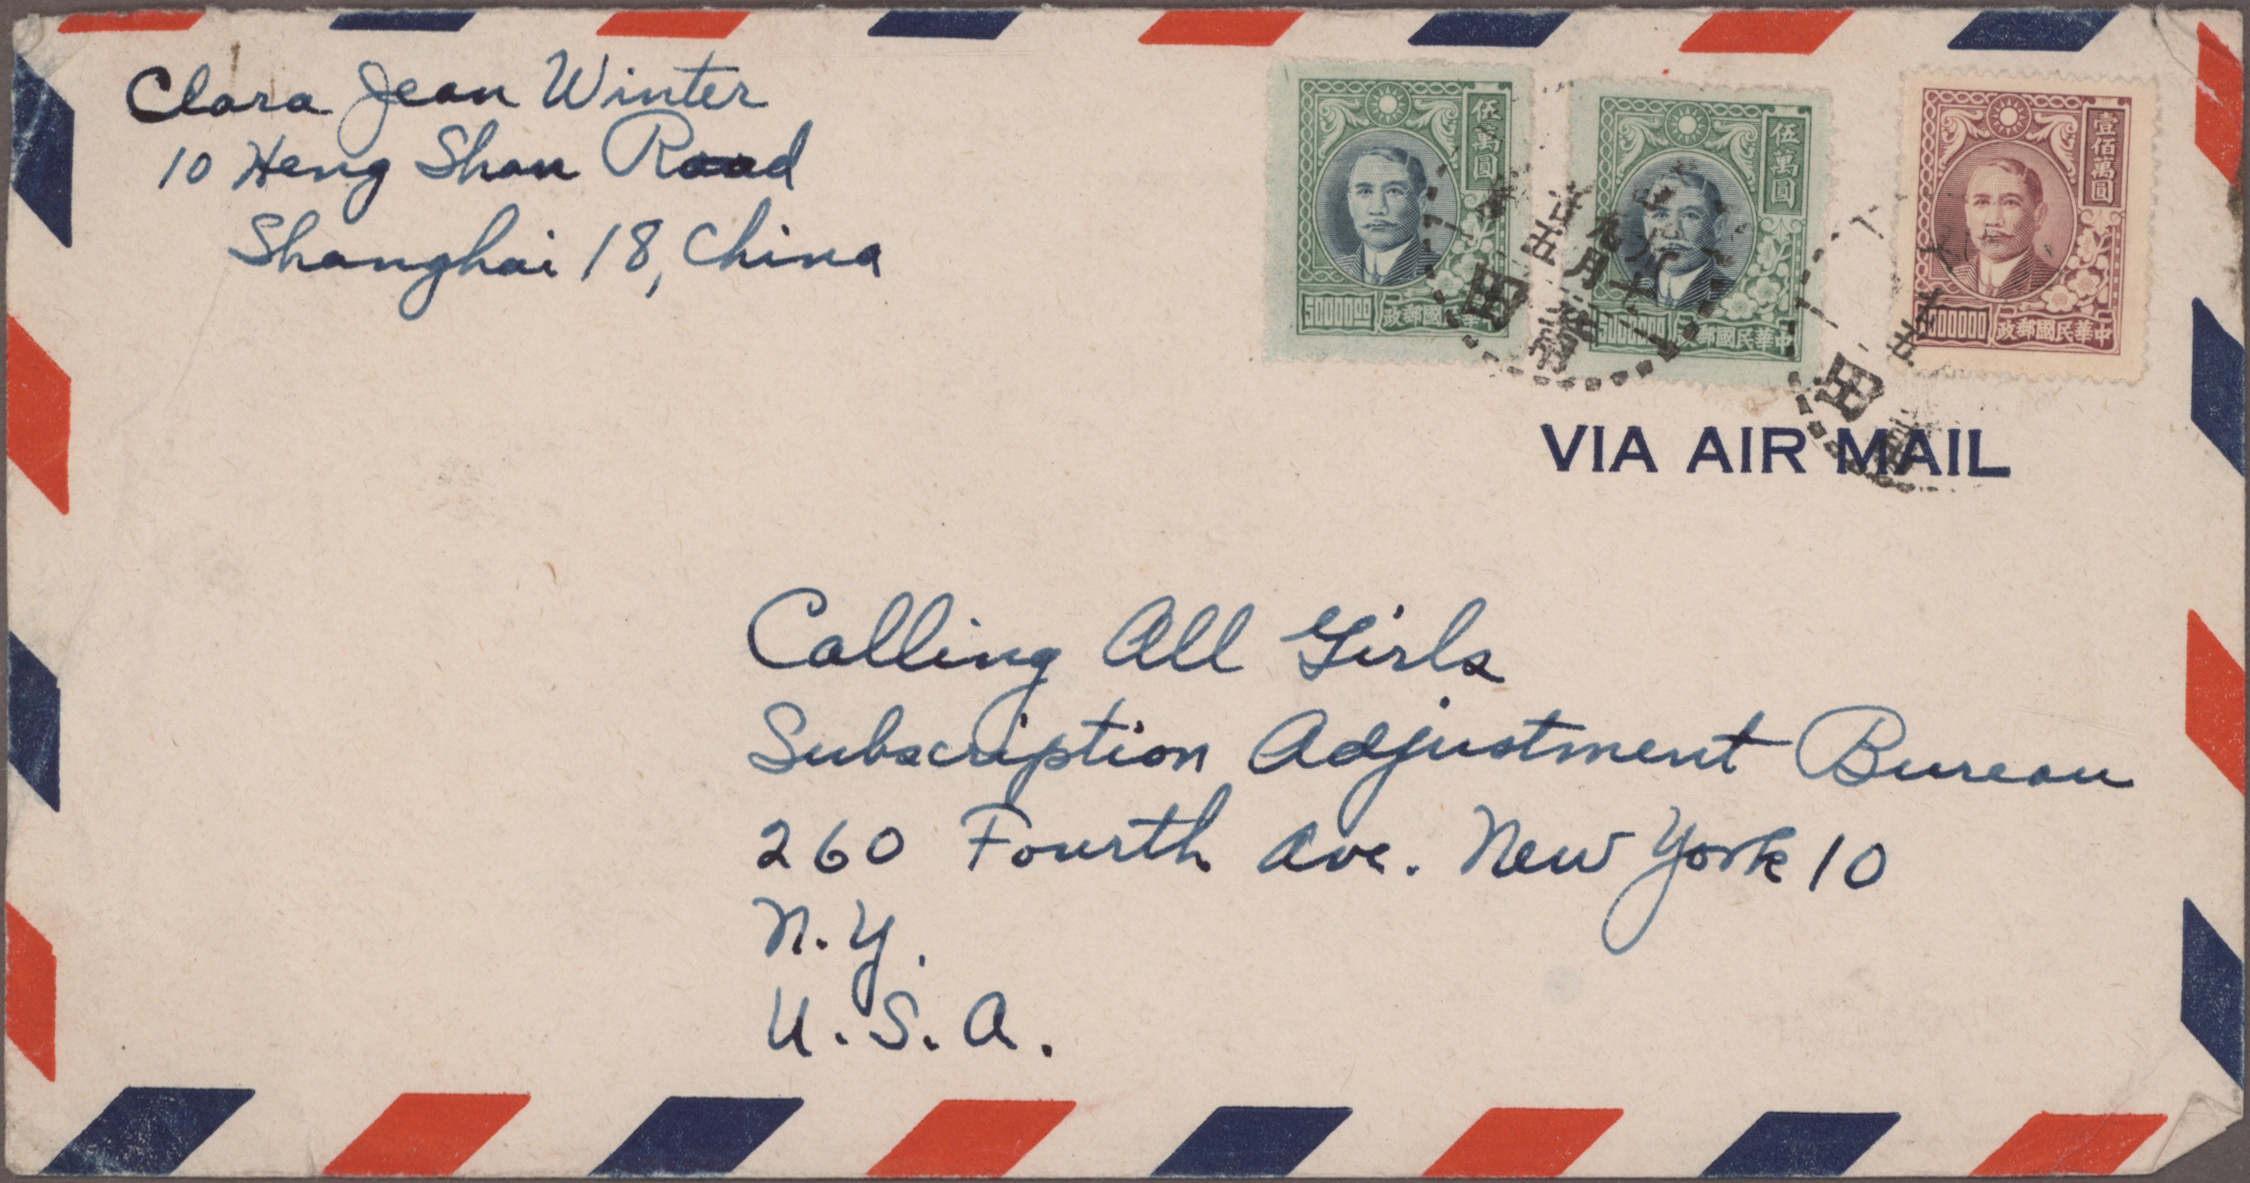 Clara Jean Winter
10 Heng Shan Road
Shanghai 18, China
伍萬圓
5000000
政郵國民華中
伍萬圓
5000000
政郵國民華中
壹佰萬圓
1000000
政郵國民華中
VIA AIR MAIL
Calling All Girls
Subscription Adjustment Bureau
260 Fourth Ave. New York 10
N.Y.
U.S.A.